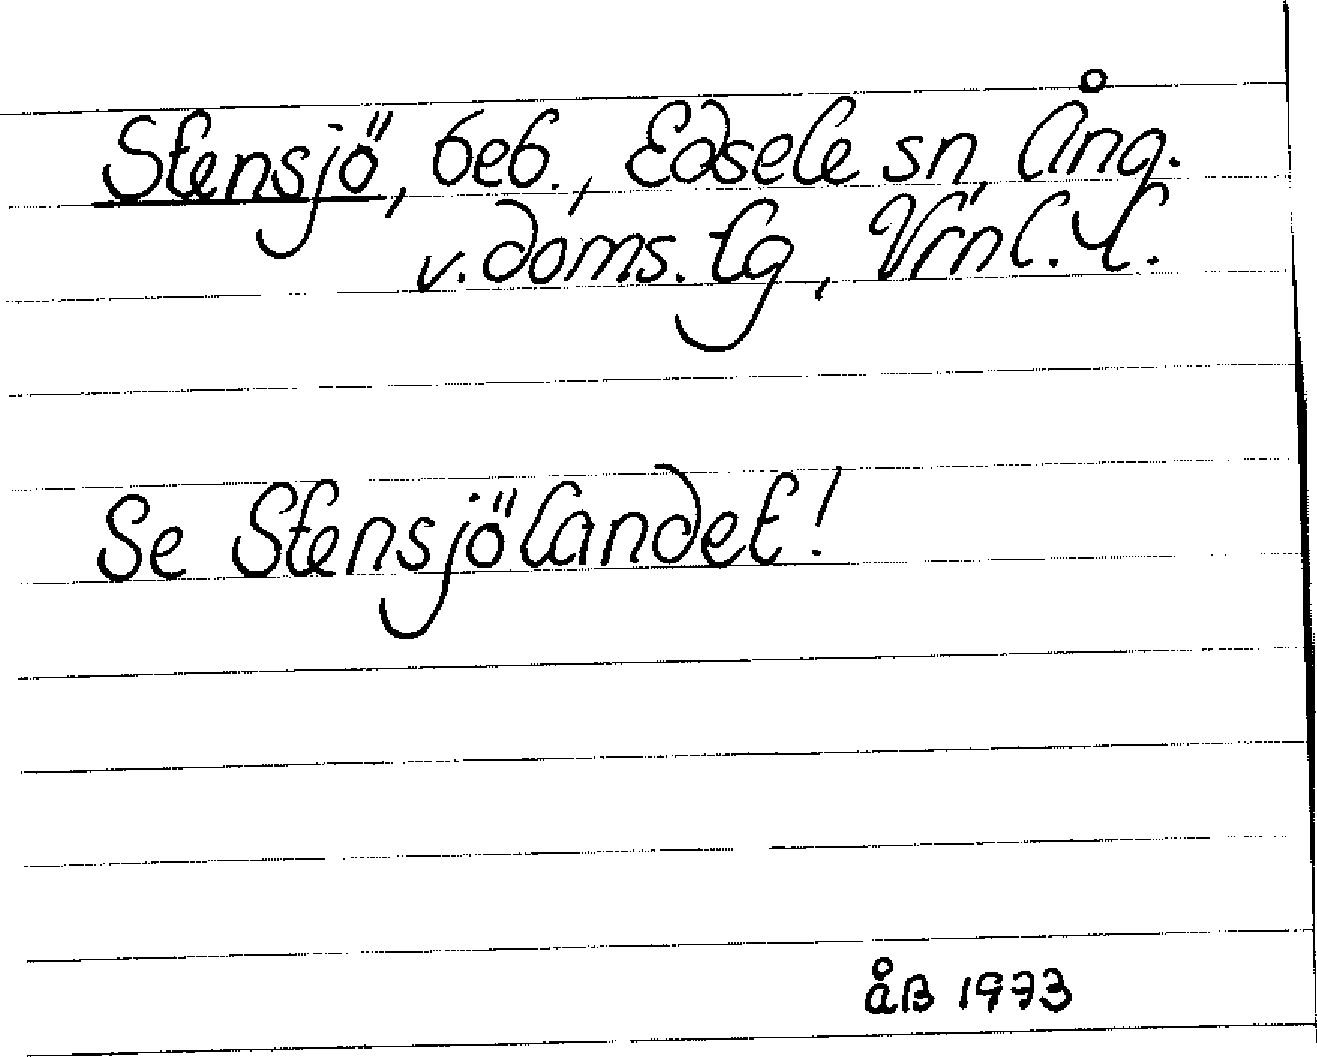 Stensjö, beb., Edsele sn, Ång.
v. doms. lg, Vrnl. l.
Se Stensjölandet!
åB 1973